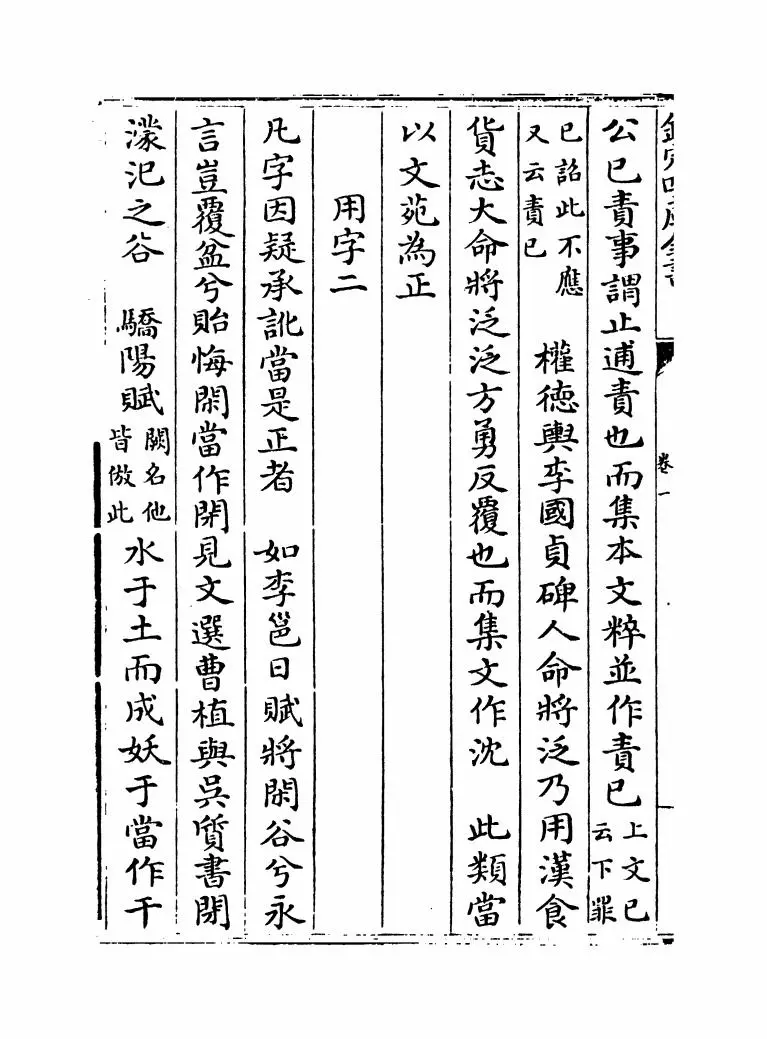 公已責事謂止逋責也而集本文粹並作責已上文已云下罪
已詔此不應又云責已　權德輿李國貞碑人命將泛乃用漢食
貨志大命將泛泛方勇反覆也而集文作沈　此類當
以文苑為正
用字二
凡字因疑承訛當是正者　如李邕日賦將閑谷兮永
言豈覆盆兮貽悔閑當作閉見文選曹植與吳質書閉
濛汜之谷　驕陽賦闕名他皆倣此水于土而成妖于當作干
卷一